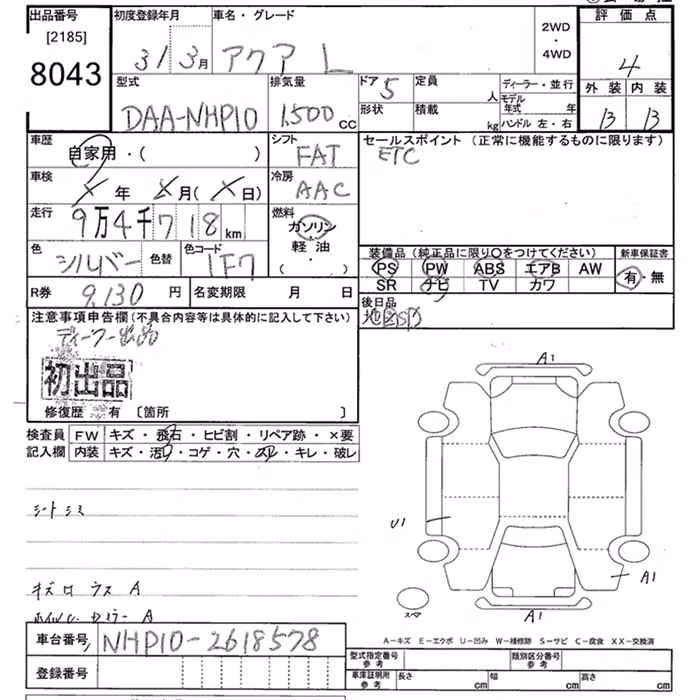 出品番号
[2185]
8043
初度登録年月
31 3月
車名・グレード
アクア L
2WD
・
4WD
評価点
4
外装 内装
B B
型式
DAA-NHP10
排気量
1,500cc
ドア 5
形状
定員 人
積載 kg
ディーラー・並行
モデル年式 年
ハンドル 左・右
車歴
自家用・( )
シフト
FAT
セールスポイント (正常に機能するものに限ります)
ETC
車検
年 月( 日)
冷房
AAC
走行
9万4千718km
燃料
ガソリン
軽油
・
( )
色
シルバー
色替
色コード
1F7
装備品 (純正品に限り○をつけてください)
PS PW ABS エアB AW
SR ナビ TV カワ
新車保証書
有・無
R券 9,130円
名変期限 月 日
後日品
地図SD
注意事項申告欄(不具合内容等は具体的に記入して下さい)
ディーラー出品
初出品
修復歴 有 〔箇所 〕
検査員記入欄
FW キズ・飛石・ヒビ割・リペア跡・×要
内装 キズ・汚・コゲ・穴・スレ・キレ・破レ
シートシミ
A1
U1
A1
A1
スペア
A-キズ E-エクボ U-凹み W-補修跡 S-サビ C-腐食 XX-交換済
車台番号 NHP10-2618578
登録番号
型式指定番号 参考
類別区分番号 参考
車庫証明用 参考
長さ cm 幅 cm 高さ cm